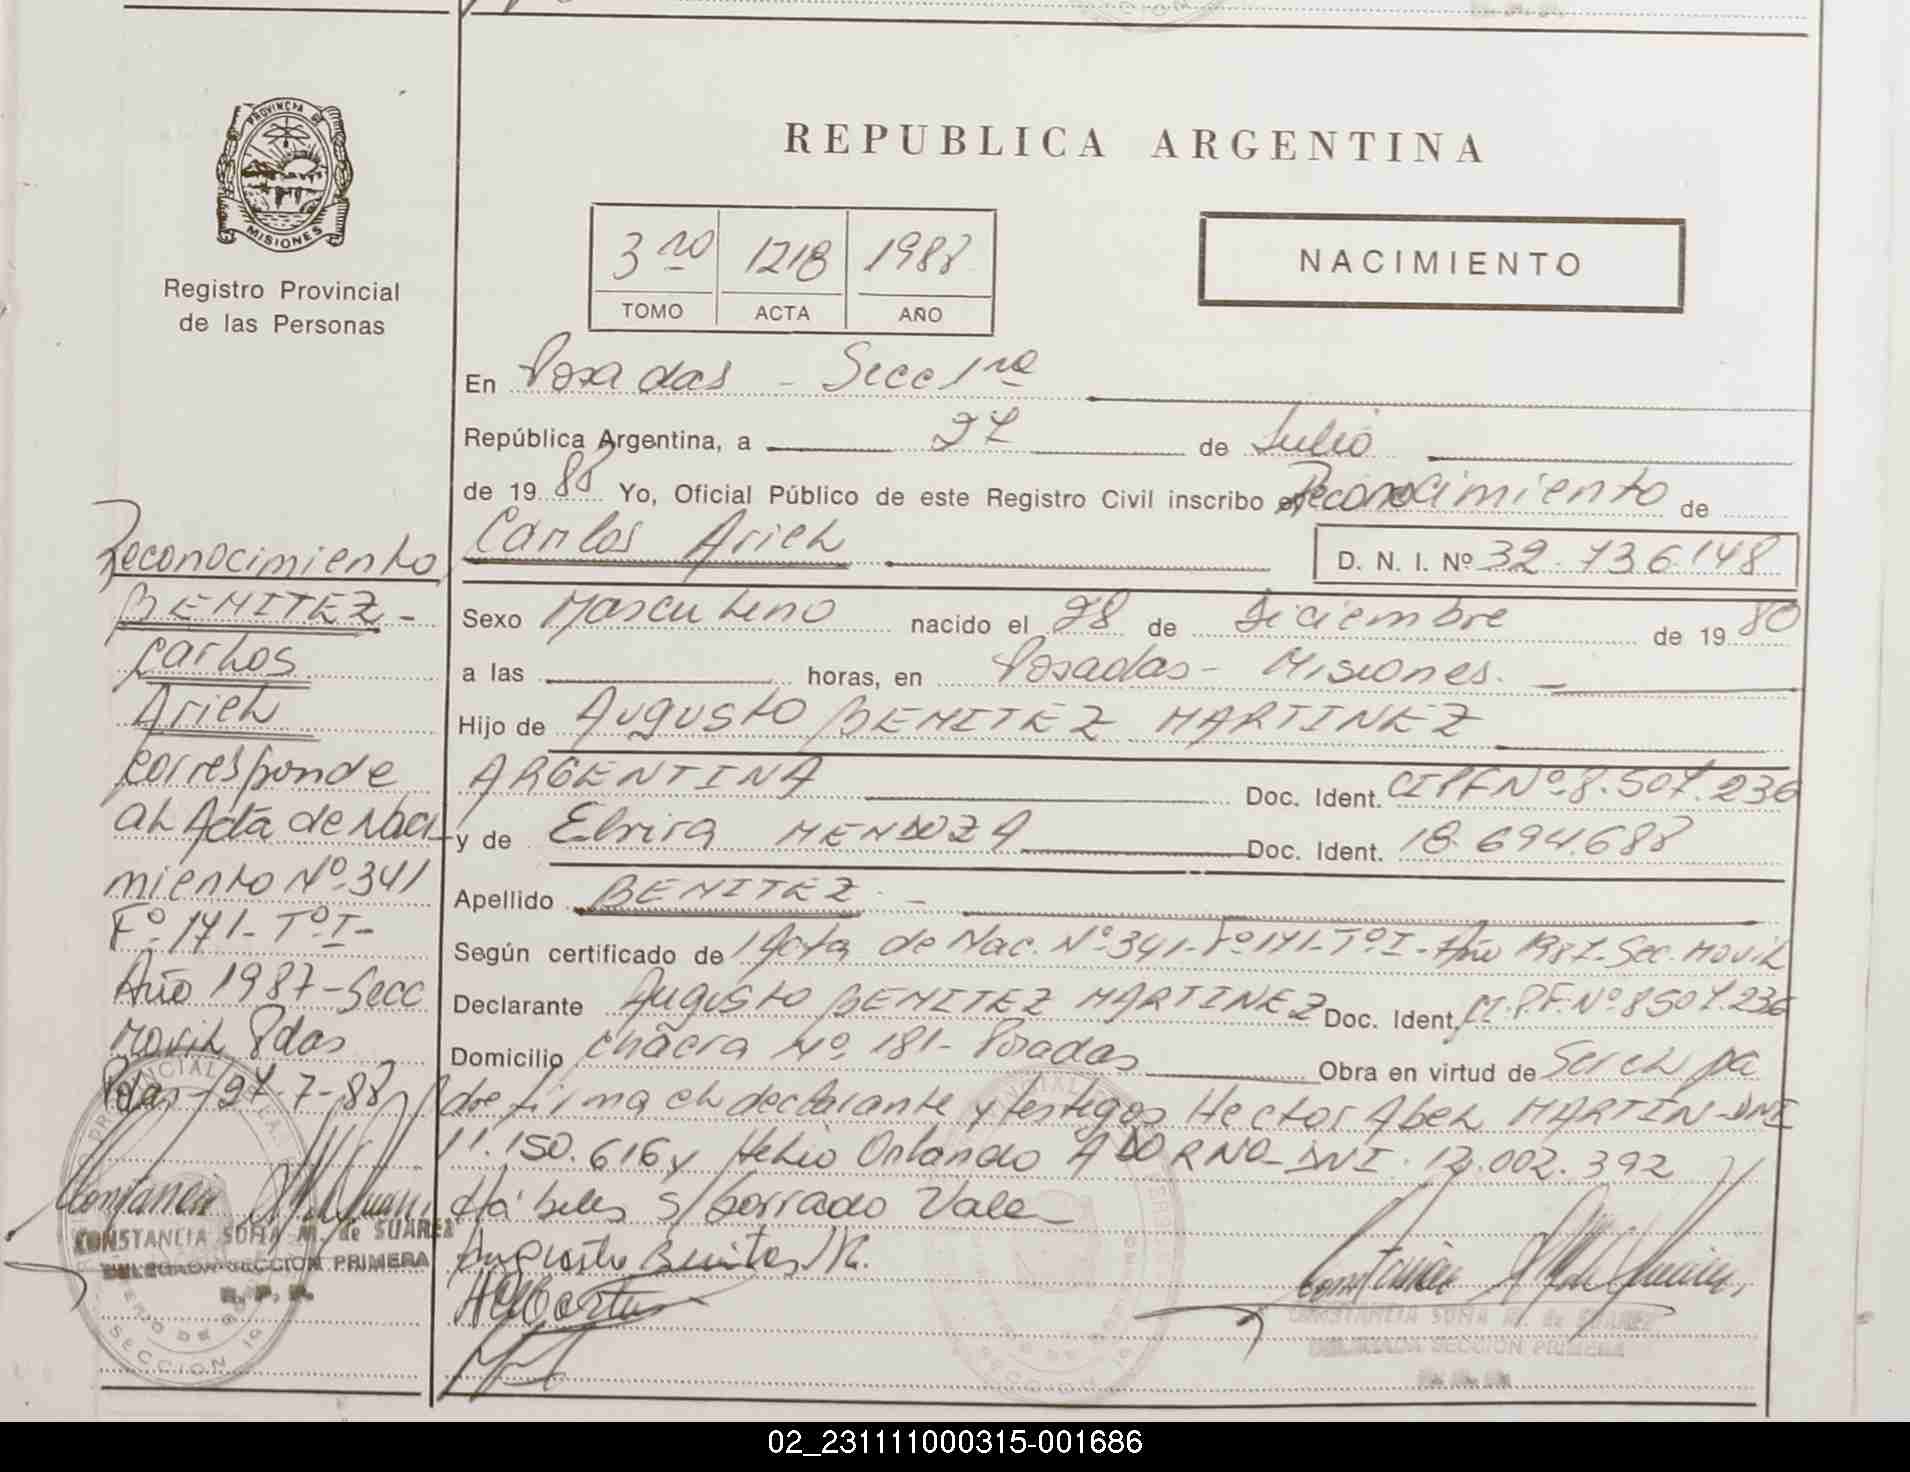 PROVINCIA DE
MISIONES
Registro Provincial
de las Personas
REPUBLICA ARGENTINA
3ro 1218 1988
TOMO ACTA AÑO
NACIMIENTO
En Posadas - Secc 1ra
República Argentina, a 27 de Julio
de 1988 Yo, Oficial Público de este Registro Civil inscribo el Reconocimiento de
Carlos Ariel
D. N. I. Nº 32.736.148
Sexo Masculino nacido el 28 de Diciembre de 1980
a las horas, en Posadas - Misiones.
Hijo de Augusto BENITEZ MARTINEZ
ARGENTINA Doc. Ident. CIPF Nº 8.507.236
y de Elvira MENDOZA Doc. Ident. 18.694.688
Apellido BENITEZ -
Según certificado de Acta de Nac. Nº 341-Fº 171-Tº I-Año 1987-Sec. Movil
Declarante Augusto BENITEZ MARTINEZ Doc. Ident. CI.P.F. Nº 8507.236
Domicilio chacra Nº 181 - Posadas Obra en virtud de Ser el pa
dre firma el declarante y testigos Hector Abel MARTIN-DNI
11.150.616 y Helio Orlando ADORNO-DNI. 12.002.392
Hábiles s/borrado Vale
Augusto Benites M.
CONSTANCIA SOFIA M. de SUAREZ
DELEGADA SECCION PRIMERA
R. P. P.
Reconocimiento
BENITEZ -
Carlos
Ariel
corresponde
al Acta de Naci
miento Nº 341
Fº 171-Tº I-
Año 1987-Secc
Movil Pdas
Pdas-27-7-88
CONSTANCIA SOFIA M. de SUAREZ
DELEGADA SECCION PRIMERA
R. P. P.
02_231111000315-001686